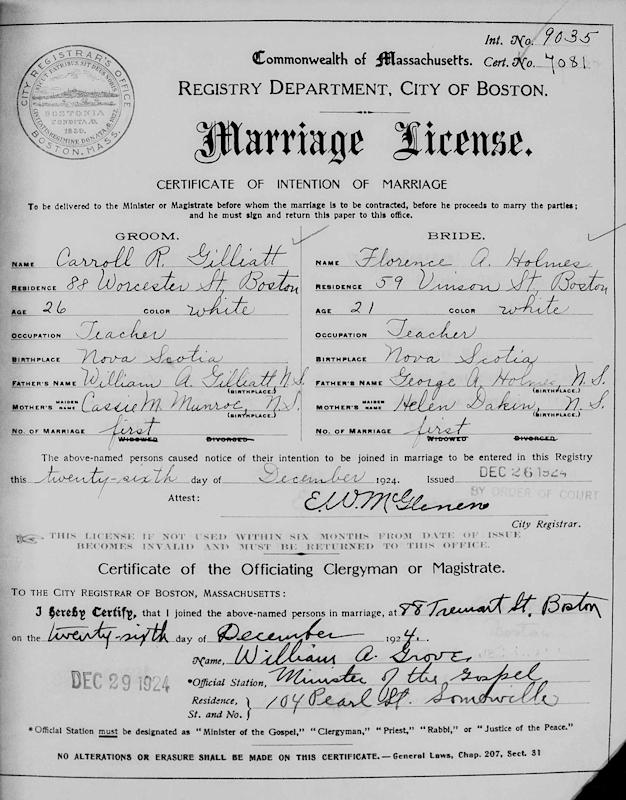 Int. No. 9035
Commonwealth of Massachusetts. Cert. No. 7081
REGISTRY DEPARTMENT, CITY OF BOSTON.
CITY REGISTRAR'S OFFICE
BOSTONIA
CONDITA A.D.
1630.
BOSTON, MASS.
Marriage License.
CERTIFICATE OF INTENTION OF MARRIAGE
To be delivered to the Minister or Magistrate before whom the marriage is to be contracted, before he proceeds to marry the parties;
and he must sign and return this paper to this office.
GROOM.
NAME Carroll R. Gilliatt
RESIDENCE 88 Worcester St, Boston
AGE 26 COLOR white
OCCUPATION Teacher
BIRTHPLACE Nova Scotia
FATHER'S NAME William A. Gilliatt, N.S.
(BIRTHPLACE.)
MOTHER'S MAIDEN NAME Cassie M. Munroe, N.S.
(BIRTHPLACE.)
NO. OF MARRIAGE first
WIDOWED DIVORCED
BRIDE.
NAME Florence A. Holmes
RESIDENCE 59 Vinson St, Boston
AGE 21 COLOR white
OCCUPATION Teacher
BIRTHPLACE Nova Scotia
FATHER'S NAME George A. Holmes, N.S.
(BIRTHPLACE.)
MOTHER'S MAIDEN NAME Helen Dakin, N.S.
(BIRTHPLACE.)
NO. OF MARRIAGE first
WIDOWED DIVORCED
The above-named persons caused notice of their intention to be joined in marriage to be entered in this Registry
this twenty-sixth day of December 1924. Issued DEC 26 1924
BY ORDER OF COURT
Attest: E.W. McGlenen
City Registrar.
THIS LICENSE IF NOT USED WITHIN SIX MONTHS FROM DATE OF ISSUE
BECOMES INVALID AND MUST BE RETURNED TO THIS OFFICE.
Certificate of the Officiating Clergyman or Magistrate.
TO THE CITY REGISTRAR OF BOSTON, MASSACHUSETTS:
I Hereby Certify, that I joined the above-named persons in marriage, at 88 Tremont St, Boston
on the twenty-sixth day of December 1924.
Name, William A. Grove,
DEC 29 1924
*Official Station, Minister of the Gospel
Residence, St. and No. } 104 Pearl St. Somerville
*Official Station must be designated as "Minister of the Gospel," "Clergyman," "Priest," "Rabbi," or "Justice of the Peace."
NO ALTERATIONS OR ERASURE SHALL BE MADE ON THIS CERTIFICATE.—General Laws, Chap. 207, Sect. 31